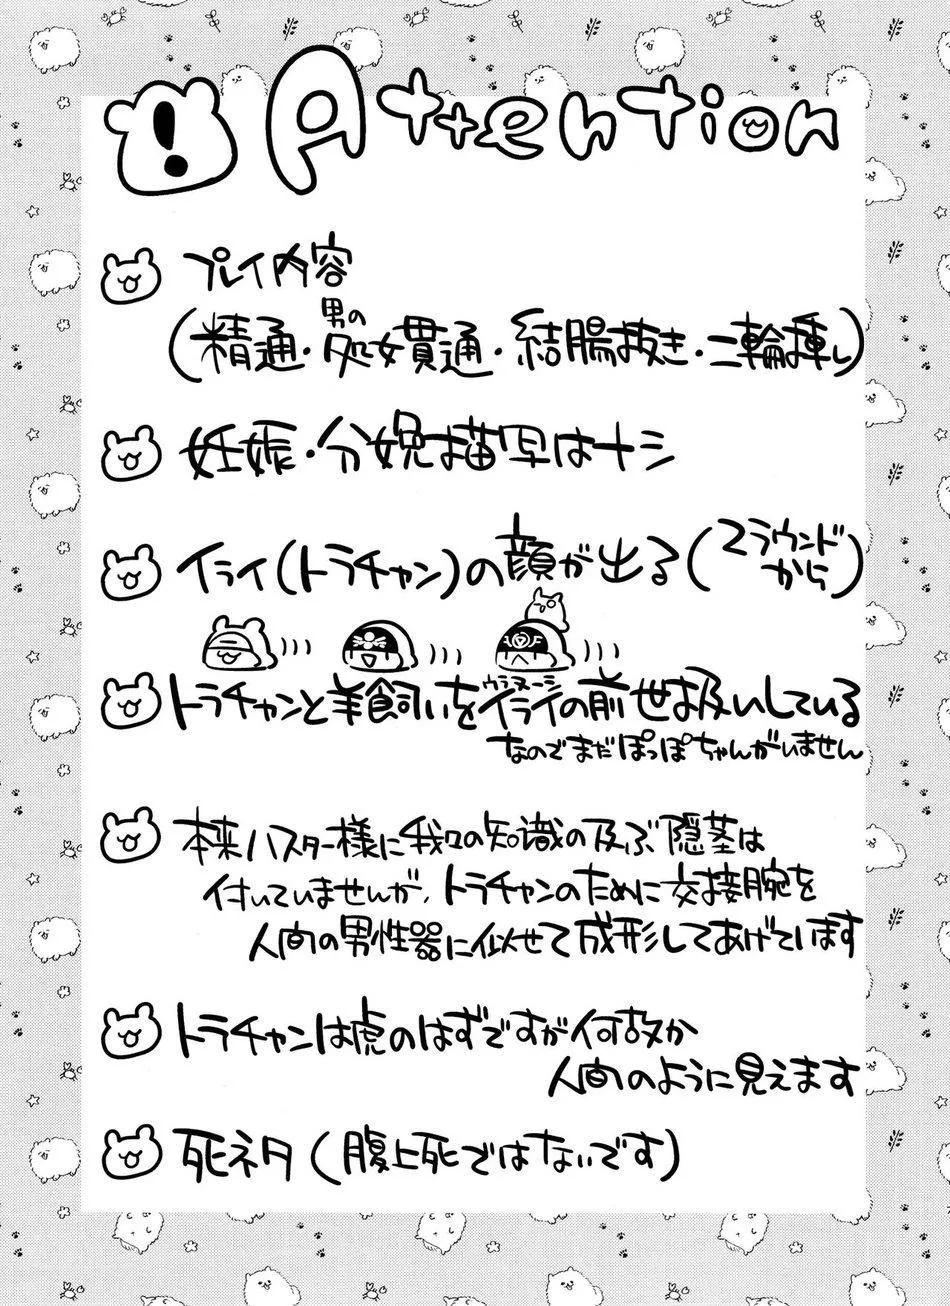 ! Attention
プレイ内容
(精通・男の処女貫通・結腸抜き・二輪挿し)
妊娠・分娩描写はナシ
イライ(トラチャン)の顔が出る(2ラウンドから)
トラチャンと羊飼いをイライの前世扱いしている
なのでまだぽっぽちゃんがいません
本来ハスター様に我々の知識の及ぶ陰茎は
付いていませんが、トラチャンのために交接腕を
人間の男性器に似せて成形してあげています
トラチャンは虎のはずですが何故か
人間のように見えます
死ネタ(腹上死ではないです)